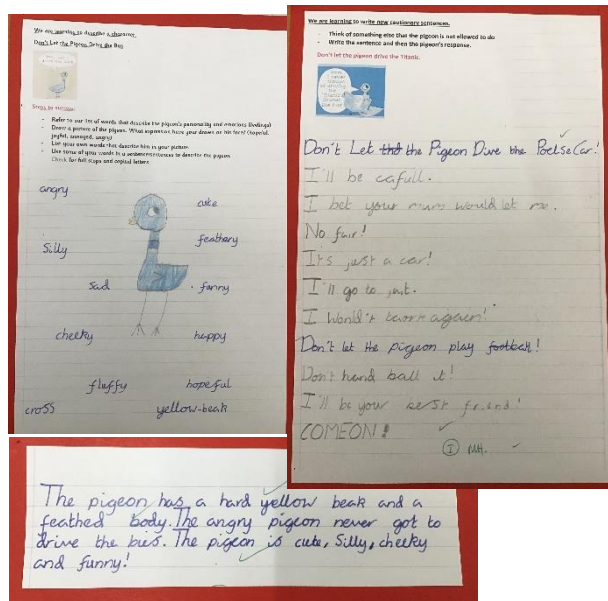 We are learning to describe a character.
Don't Let the Pigeon Drive the Bus
Steps to success:
- Refer to our list of words that describe the pigeon's personality and emotions (feelings)
- Draw a picture of the pigeon. What expression have you drawn on his face? (hopeful,
joyful, annoyed, angry)
- List your own words that describe him in your picture
- Use some of your words in a sentence/sentences to describe the pigeon
Check for full stops and capital letters
angry
cute
feathery
Silly
sad
funny
cheeky
happy
fluffy
hopeful
cross
yellow-beak
We are learning to write new cautionary sentences.
- Think of something else that the pigeon is not allowed to do
- Write the sentence and then the pigeon's response.
Don't let the pigeon drive the Titanic.
Don't Let the Pigeon Dive the Poelse Car!
I'll be cafull.
I bet your mum would let me.
No fair!
It's just a car!
I'll go to jail.
I
again!
Don't let the pigeon play football!
Don't hand ball it!
I'll be your best friend!
COMEON!
I MH.
The pigeon has a hard yellow beak and a
feathed body. The angry pigeon never got to
drive the bus. The pigeon is cute, Silly, cheeky
and funny!